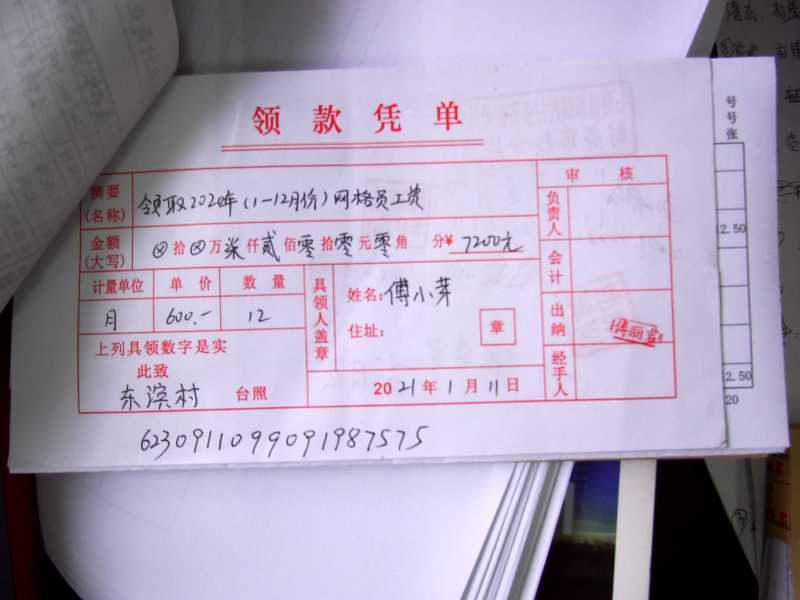 领款凭单
摘要(名称) 领取2020年(1-12月份)网格员工资
审核
金额(大写) ⊗拾⊗万柒仟贰佰零拾零元零角 分¥ 7200元
负责人
计量单位 单价 数量
月 600.- 12
具领人盖章
姓名:傅小芽
住址:
章
会计
出纳
经手人
上列具领数字是实
此致
东滨村 台照
2021年1月11日
6230911099091987575
号
号
张
12.50
2.50
20